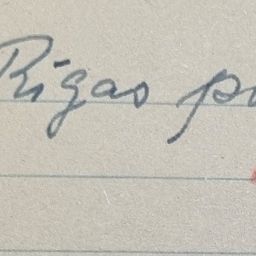 Rigas p